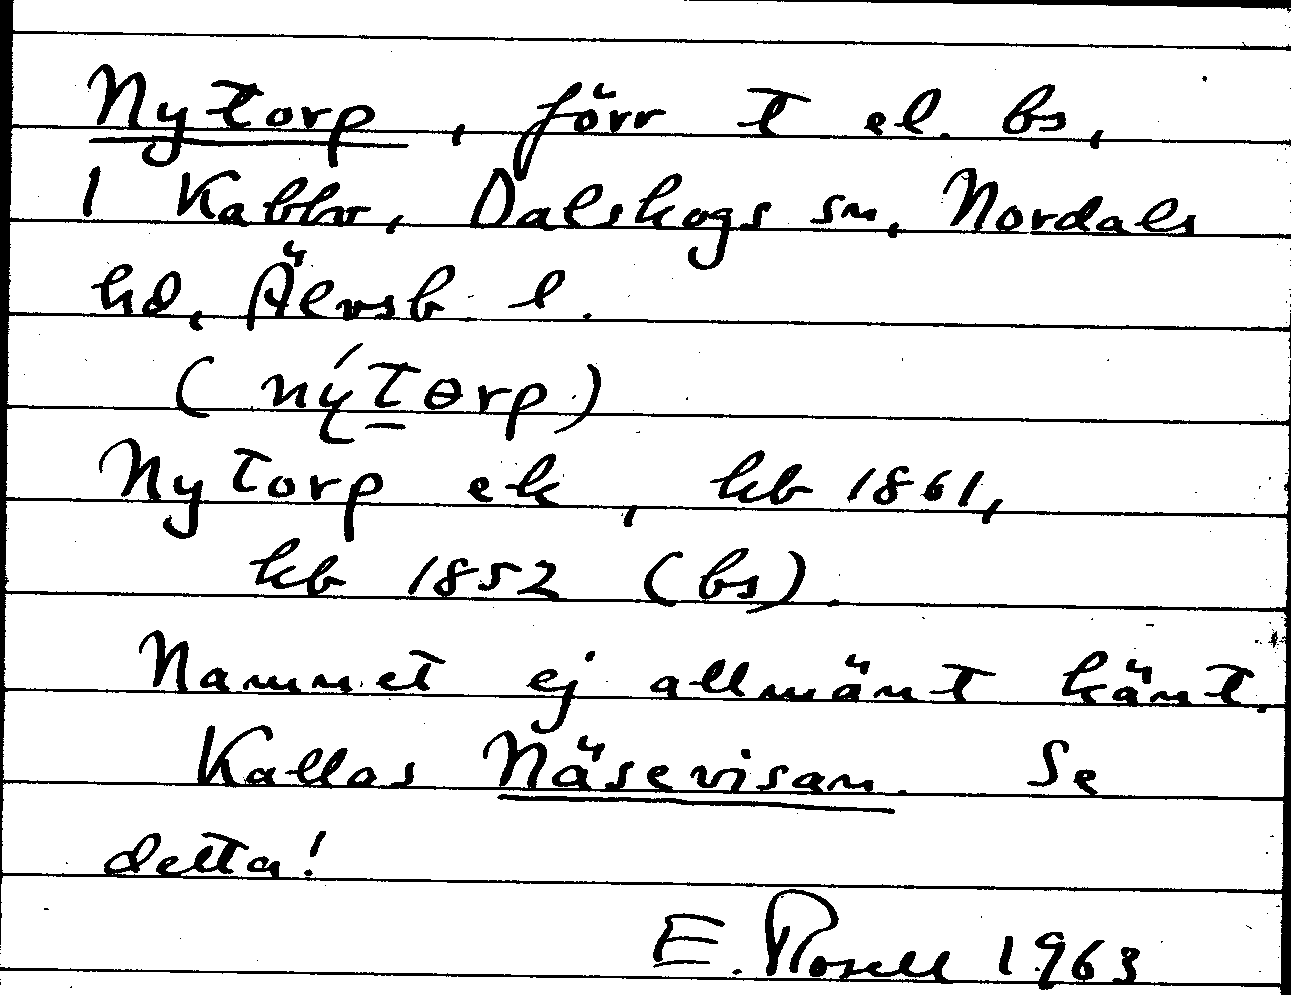 Nytorp, förr t el. bs,
1 Kabbo, Dalskogs sn, Nordals
hd, Älvsb. l.
(nýtɵrp)
Nytorp ek, kb 1861,
kb 1852 (bs).
Namnet ej allmänt känt.
Kallas Näsevisam. Se
detta!
E. Rosell 1963